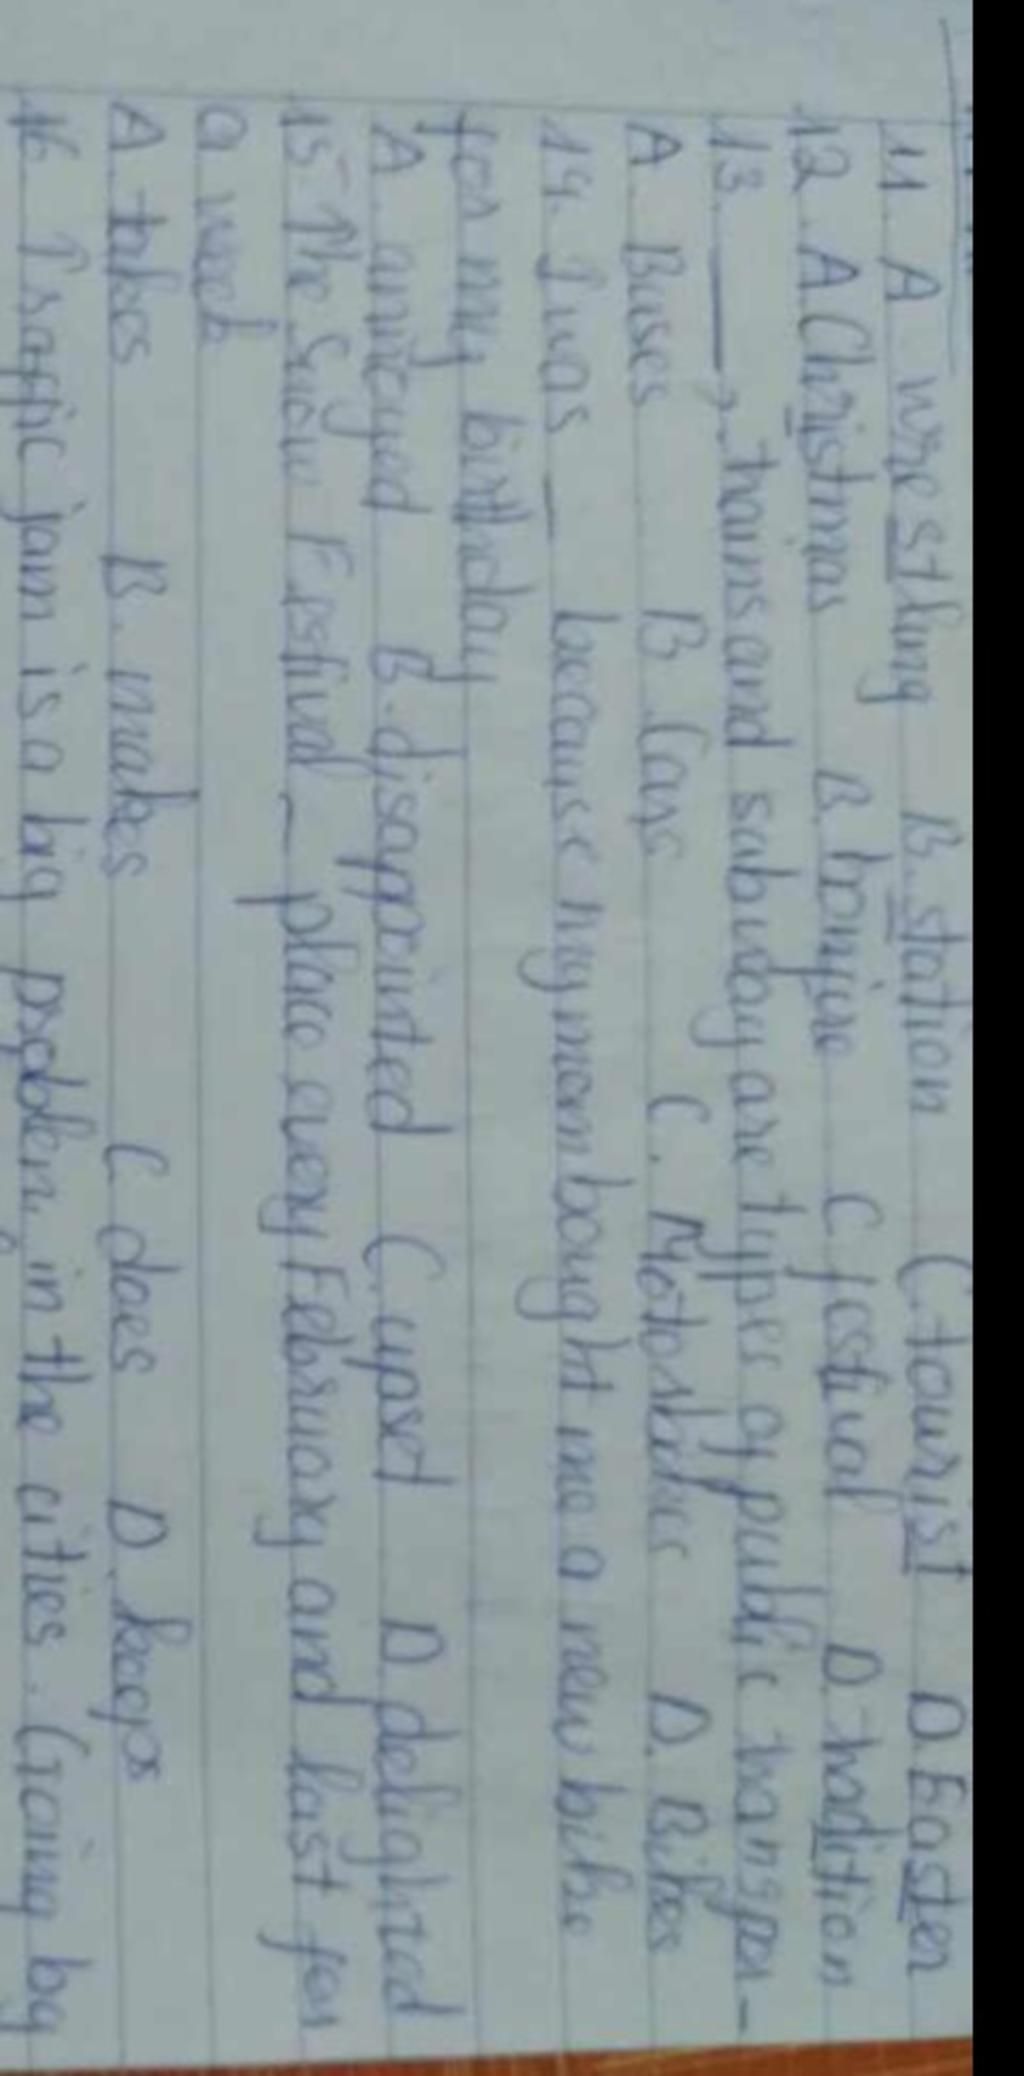 11. A wrestling B. station C. tourist D. Easter
12. A Christmas B. bonfire C. festival D. tradition
13. ____, trains and subway are types of public transpor-
A. Buses B. Cars C. Motorbikes D. Bikes
14. I was _ because my mom bought me a new bike
for my birthday
A. annoyed B. disappointed C. upset D. delighted
15 The Snow Festival _ place every February and last for
a week
A. takes B. makes C. does D. keeps
16. Traffic jam is a big problem in the cities. Going by